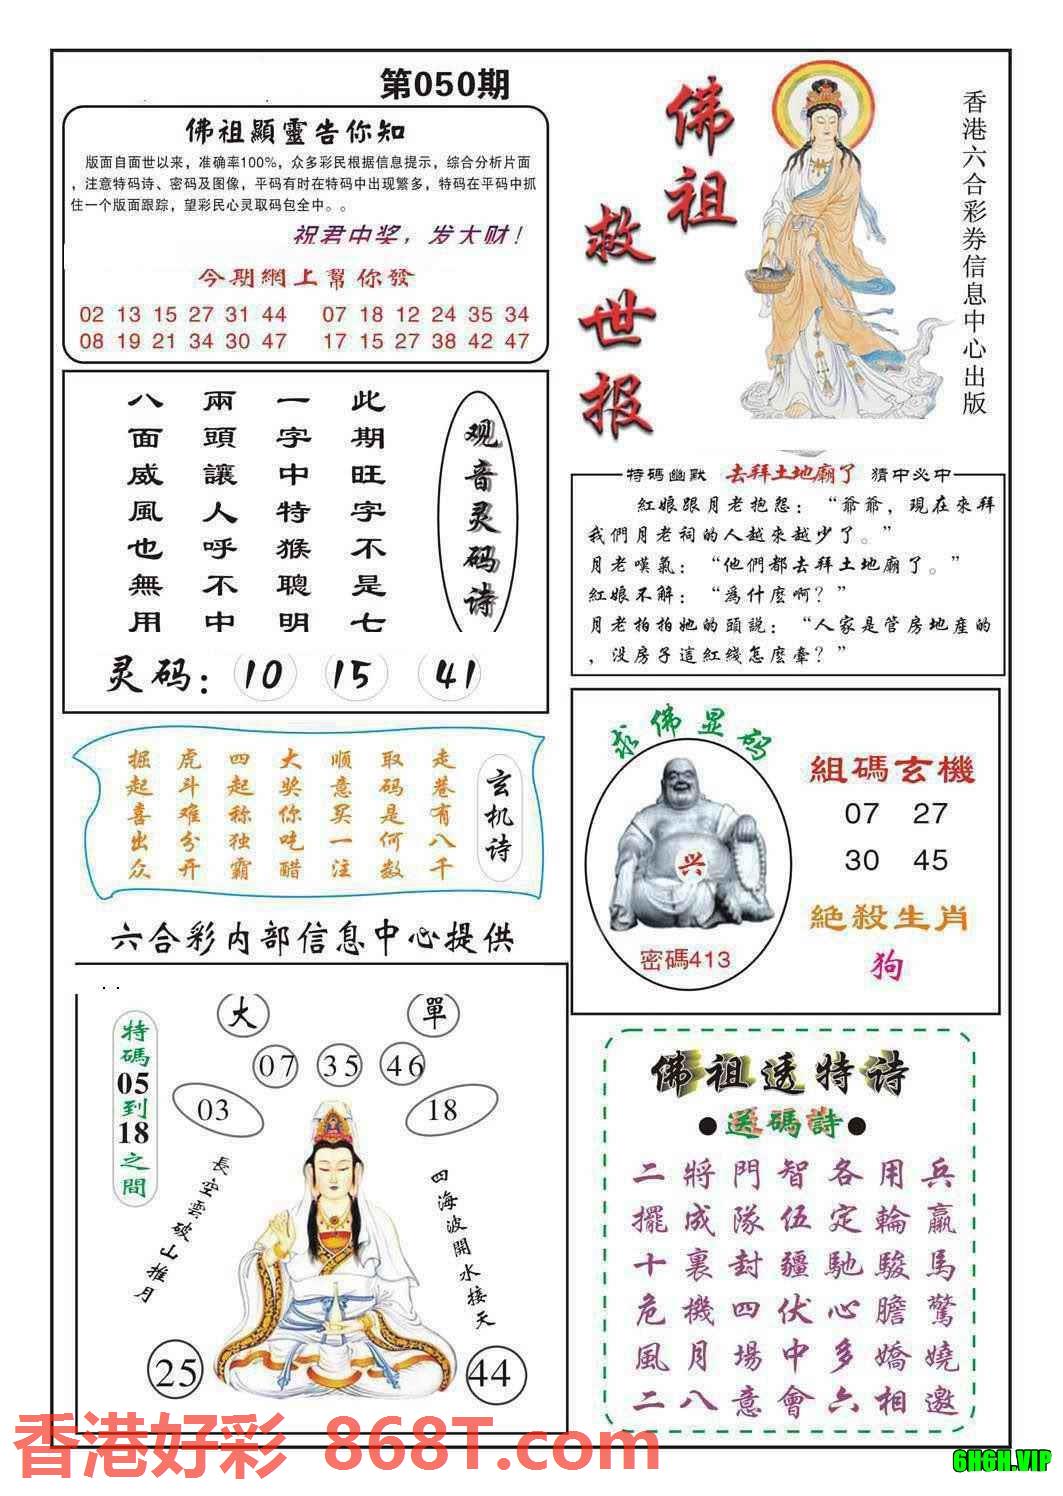 第050期
佛祖顯靈告你知
版面自面世以来，准确率100%，众多彩民根据信息提示，综合分析片面
，注意特码诗、密码及图像，平码有时在特码中出现繁多，特码在平码中抓
住一个版面跟踪，望彩民心灵取码包全中。。
祝君中奖，发大财！
今期網上幫你發
02 13 15 27 31 44 07 18 12 24 35 34
08 19 21 34 30 47 17 15 27 38 42 47
佛祖
救世报
香港六合彩券信息中心出版
观音灵码诗
此期旺字不是七
一字中特猴聰明
兩頭讓人呼不中
八面威風也無用
灵码：10 15 41
特碼幽默 去拜土地廟了 猜中必中
紅娘跟月老抱怨：“爺爺，現在來拜
我們月老祠的人越來越少了。”
月老嘆氣：“他們都去拜土地廟了。”
紅娘不解：“爲什麼啊？”
月老拍拍她的頭説：“人家是管房地産的
，没房子這紅綫怎麼牽？”
玄机诗
走巷有八千
取码是何数
顺意买一注
大奖你吃醋
四起称独霸
虎斗难分开
掘起喜出众
六合彩内部信息中心提供
求佛显码
兴
密碼413
組碼玄機
07 27
30 45
絶殺生肖
狗
特碼05到18之間
大 單
07 35 46
03 18
長空雲破山推月
四海波開水接天
25 44
佛祖透特诗
●送碼詩●
二將門智各用兵
擺成隊伍定輪贏
十裏封疆馳駿馬
危機四伏心膽驚
風月場中多嬌嬈
二八意會六相邀
香港好彩 868T.com
6H6H.VIP